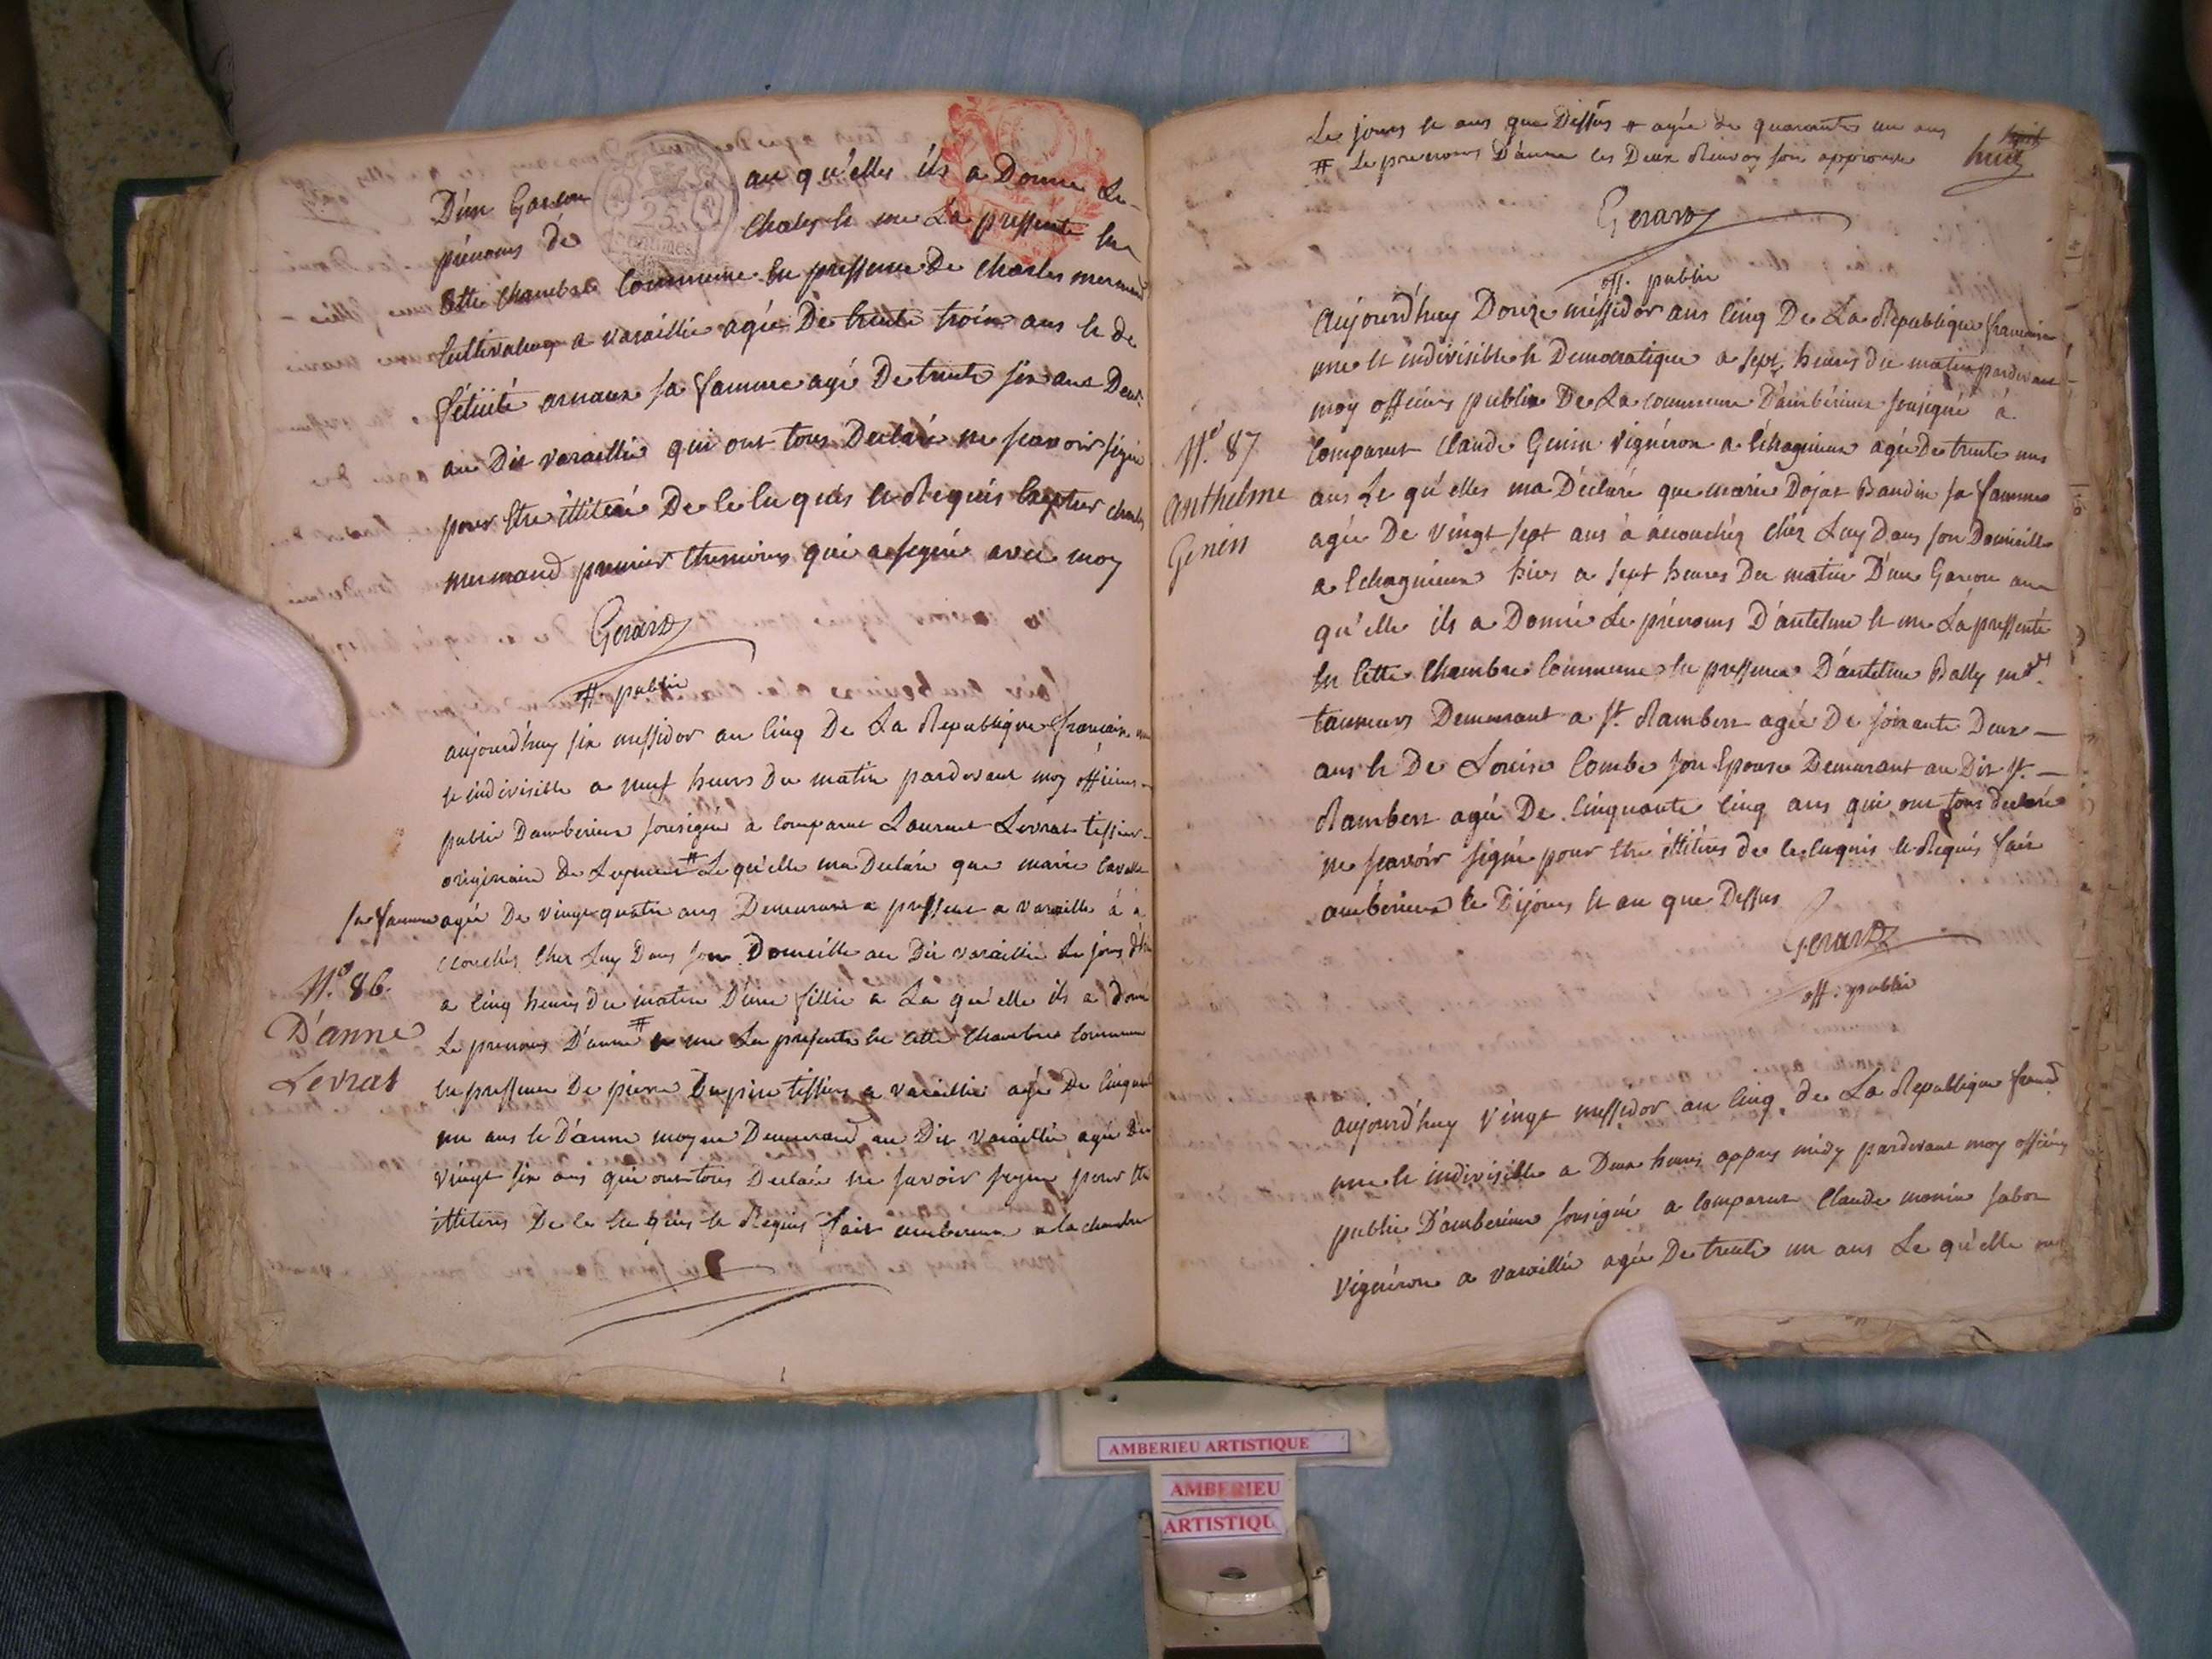 D'un Garcon au qu'elles ils a Donne Le
prénoms de Charles et me La pressente en
25 centimes
Cette chambre Commune En pressence De Charles mermand
Cultivateur a varaillie agée De trente trois ans et de
félicité arnaux sa famme agé De trente six ans Deux
au Dit varaillie qui ont tous Declaré ne scavoir signé
pour etre illiteré De le En quis et Requis Excepter charles
mermand premier themoins qui a signé avec moy
Gerard
off. public
aujourd'huy six messidor an Cinq De La Republique francaise une
et indivisible a neuf heures du matin pardevant moy officiers
public Damberieux sousigné a Comparut Laurent Levrat tissier
originaire de Leyment # Le qu'elle ma Declaré que marie
sa famme agée De vingt quatre ans Demeurant a pressent a varaille à a
ccouchés Cher Luy Dans son Domicille au Dit varaillie Le jours d'hi
a Cinq heures du matin D'une fillie a La qu'elle ils a donné
Le prenoms D'anne # et me La presente en Cette Chambre Commune
En pressence De pierre Dupin tissier a varaillie agé De Cinquante
un ans et D'anne moyne Demeurand au Dit Varaillie agée De
vingt six ans qui ont tous Declaré ne savoir signe pour etre
illiteres De ce En quis et Requis fair amberieux a la chambre
N.° 86.
D'anne
Levrat
Le jours et ans que Dessus # agée de quarante un ans
# Le prenoms D'anne les Deux Renvoy son approuve
huit
Gerard
off. public
Aujourd'huy Douze messidor ans Cinq De La Republique francaise
une et indivisible et Democratique a sept heures du matin pardevant
moy officiers public De La Commune D'ambérieux sousigné à
Comparut Claude Genin vigneron a l'échagnieux agée de trente un
ans Le qu'elles ma Déclaré que marie Dojat Baudin sa famme
agée De vingt sept ans à accouchéz chéz Luy Dans son Domicille
a l'chagnieux hiers a sept heures Du matin D'un Garcon au
qu'elle ils a Donné Le prénoms D'antelme et me La pressenté
En Cette Chambre Commune En pressence D'antelme Bally md
tanneurs Demeurant a St. Rambert agée De soixante Deux
ans et De Louise Combe son Epouse Demurant au Dit St.
Rambert agée De Cinquante Cinq ans qui ont tous declaré
ne scavoir signé pour etre illitéres de ce enquis et Requis fair
ambérieux le Dijours et an que Dessus
Gerard
off. public
N.° 87
Anthelme
Genin
aujourd'huy vingt messidor an Cinq de La Republique franc
une et indivisible a Deux heures appres midy pardevant moy officiers
public D'amberieux sousigné a Comparut Claude monin sabot
vigneron a varaillie agée De trente un ans Le qu'elle ma
AMBERIEU ARTISTIQUE
AMBERIEU
ARTISTIQU